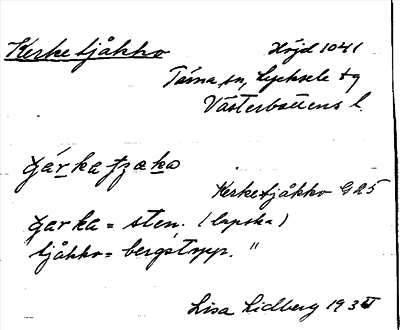 Kerketjåkko Höjd 1041
Tärna sn, Lycksele lg
Västerbottens l.
Kerketjåkko G25
garka = sten. (lapska)
tjåkko = bergstopp. "
Lisa Lidberg